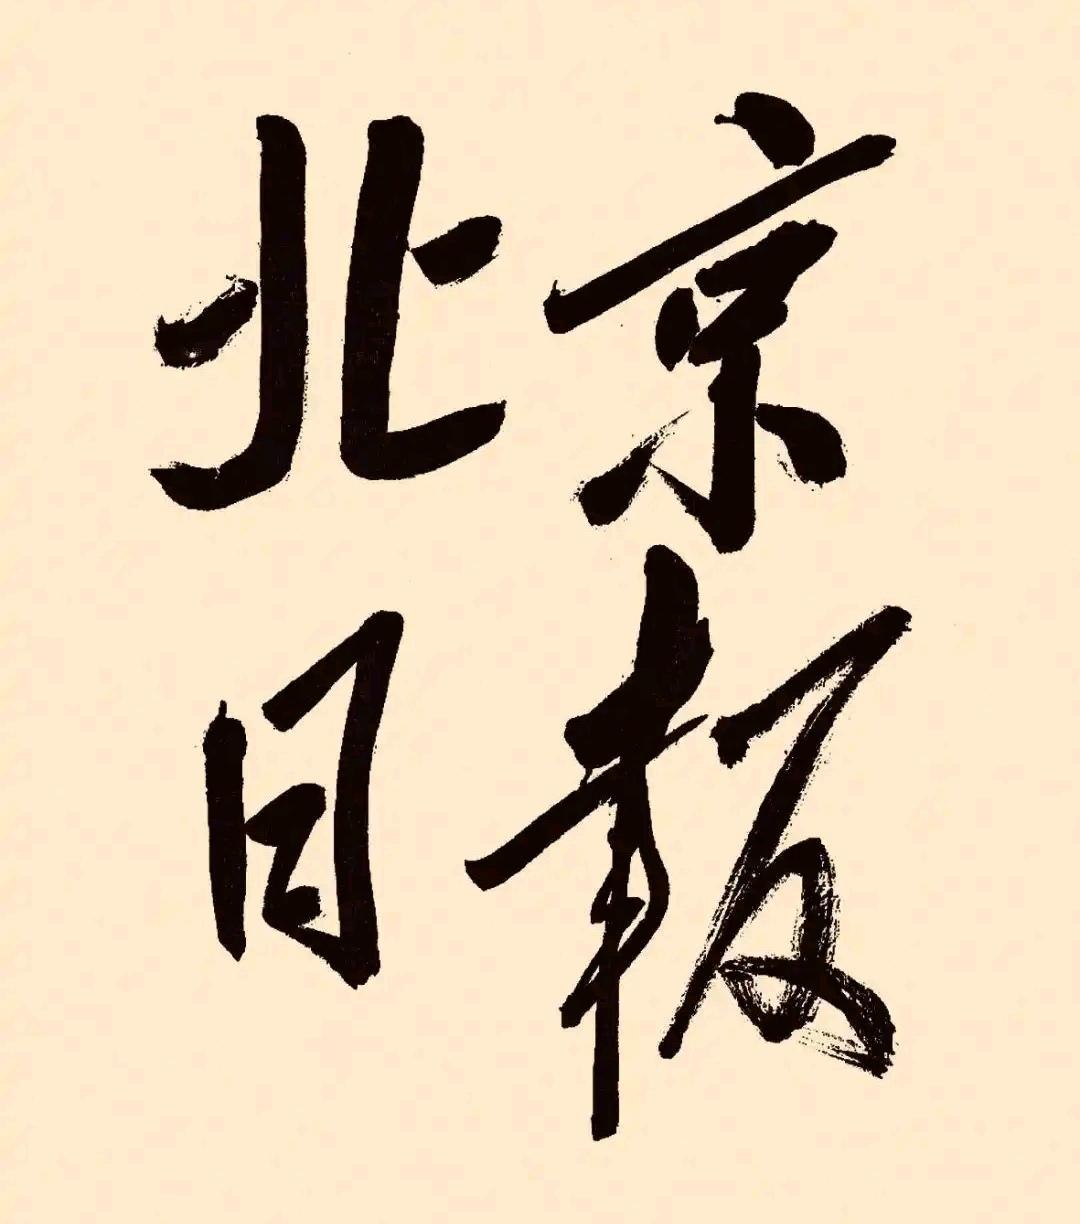 北京
日報